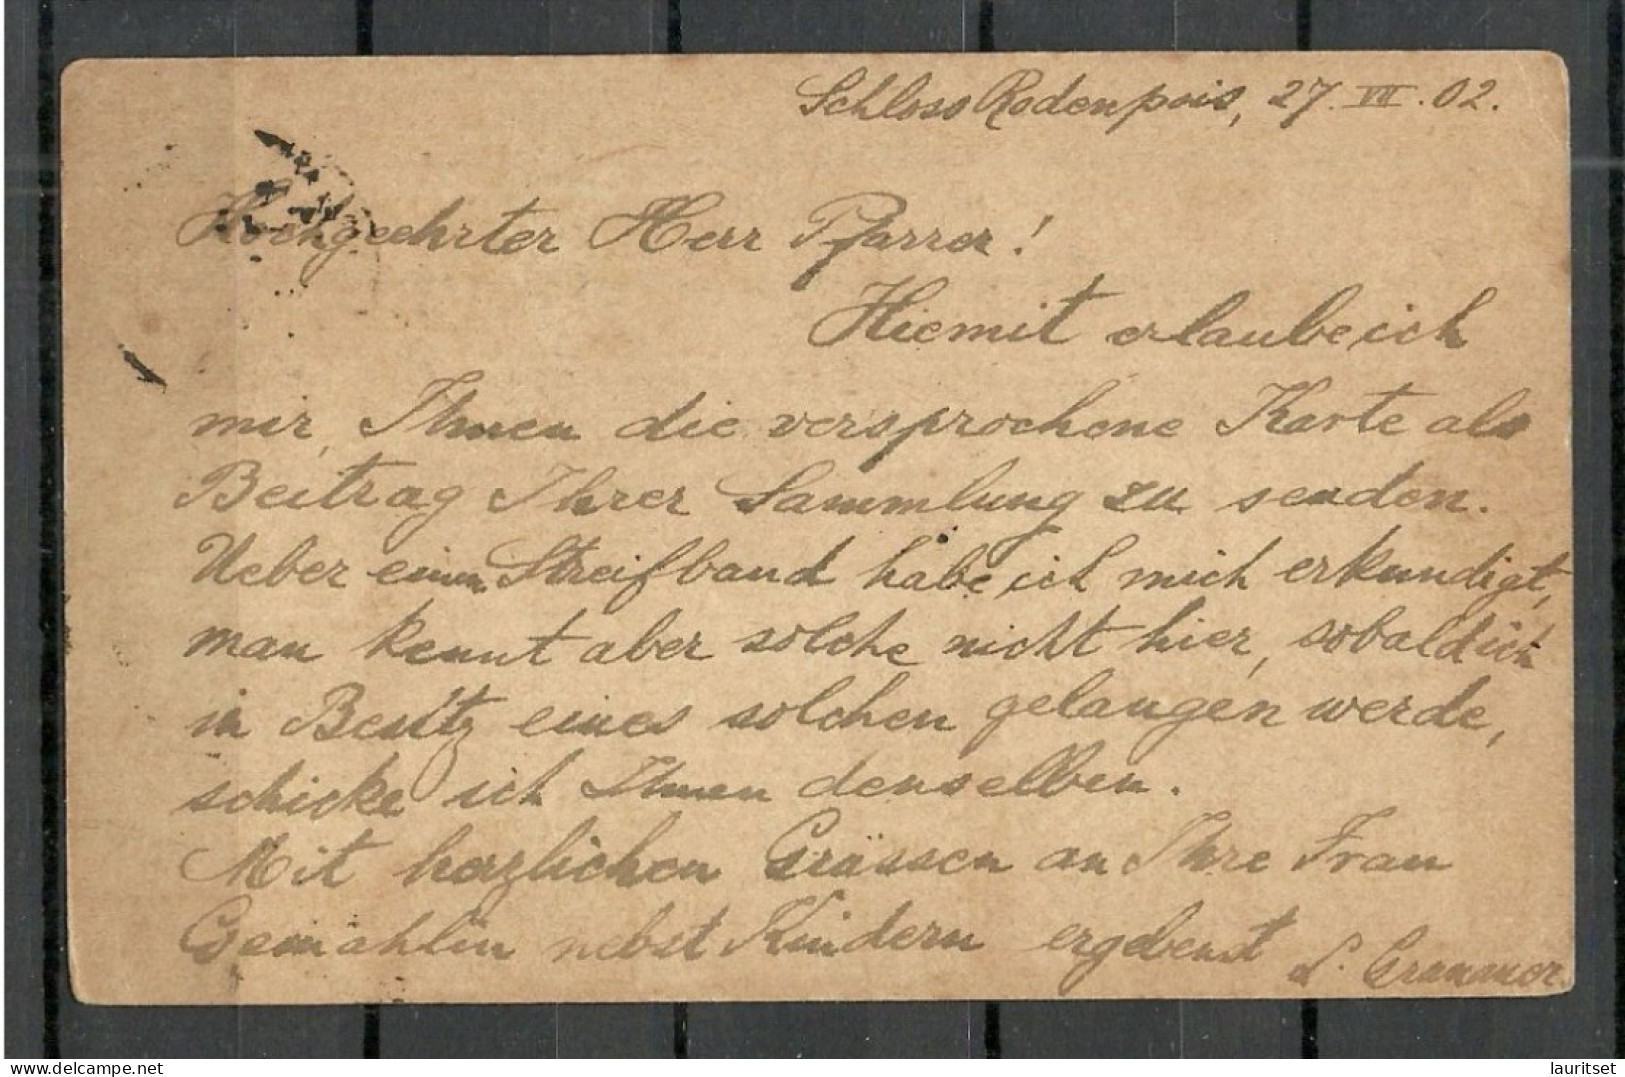 Schloss Rodenpois, 27. VII. 02.
Hochgeehrter Herr Pfarrer!
Hiemit erlaube ich
mir, Ihnen die versprochene Karte als
Beitrag Ihrer Sammlung zu senden.
Ueber einen Streifband habe ich mich erkundigt,
man kennt aber solche nicht hier, sobald ich
in Besitz eines solchen gelangen werde,
schicke ich Ihnen denselben.
Mit herzlichen Grüssen an Ihre Frau
Gemahlin nebst Kindern ergebenst
delcampe.net
lauritset